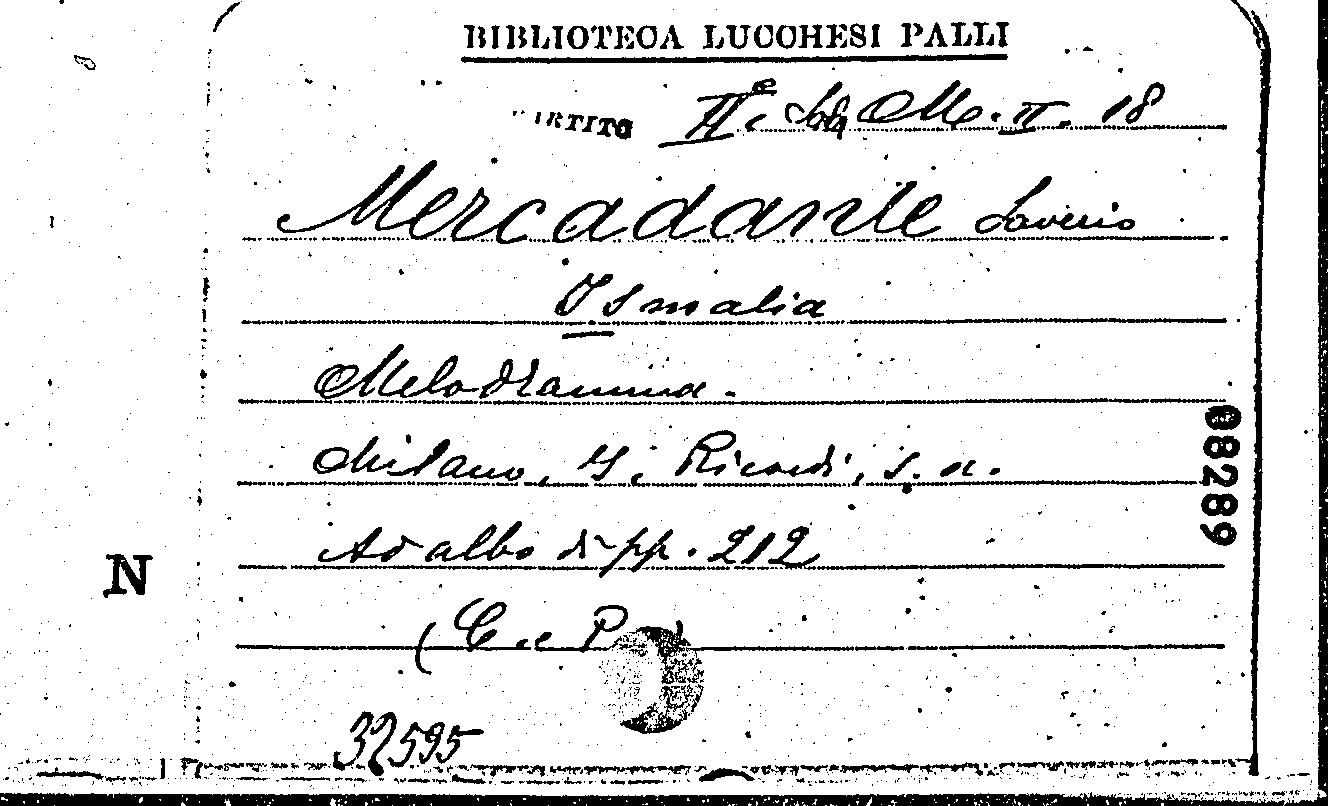 BIBLIOTECA LUCCHESI PALLI
M. II. 18
Mercadante Saverio
Ismalia
Melodramma.
Milano, G. Ricordi, s. a.
Ad albo di pp. 212
(C. e P.)
32595
08289
N